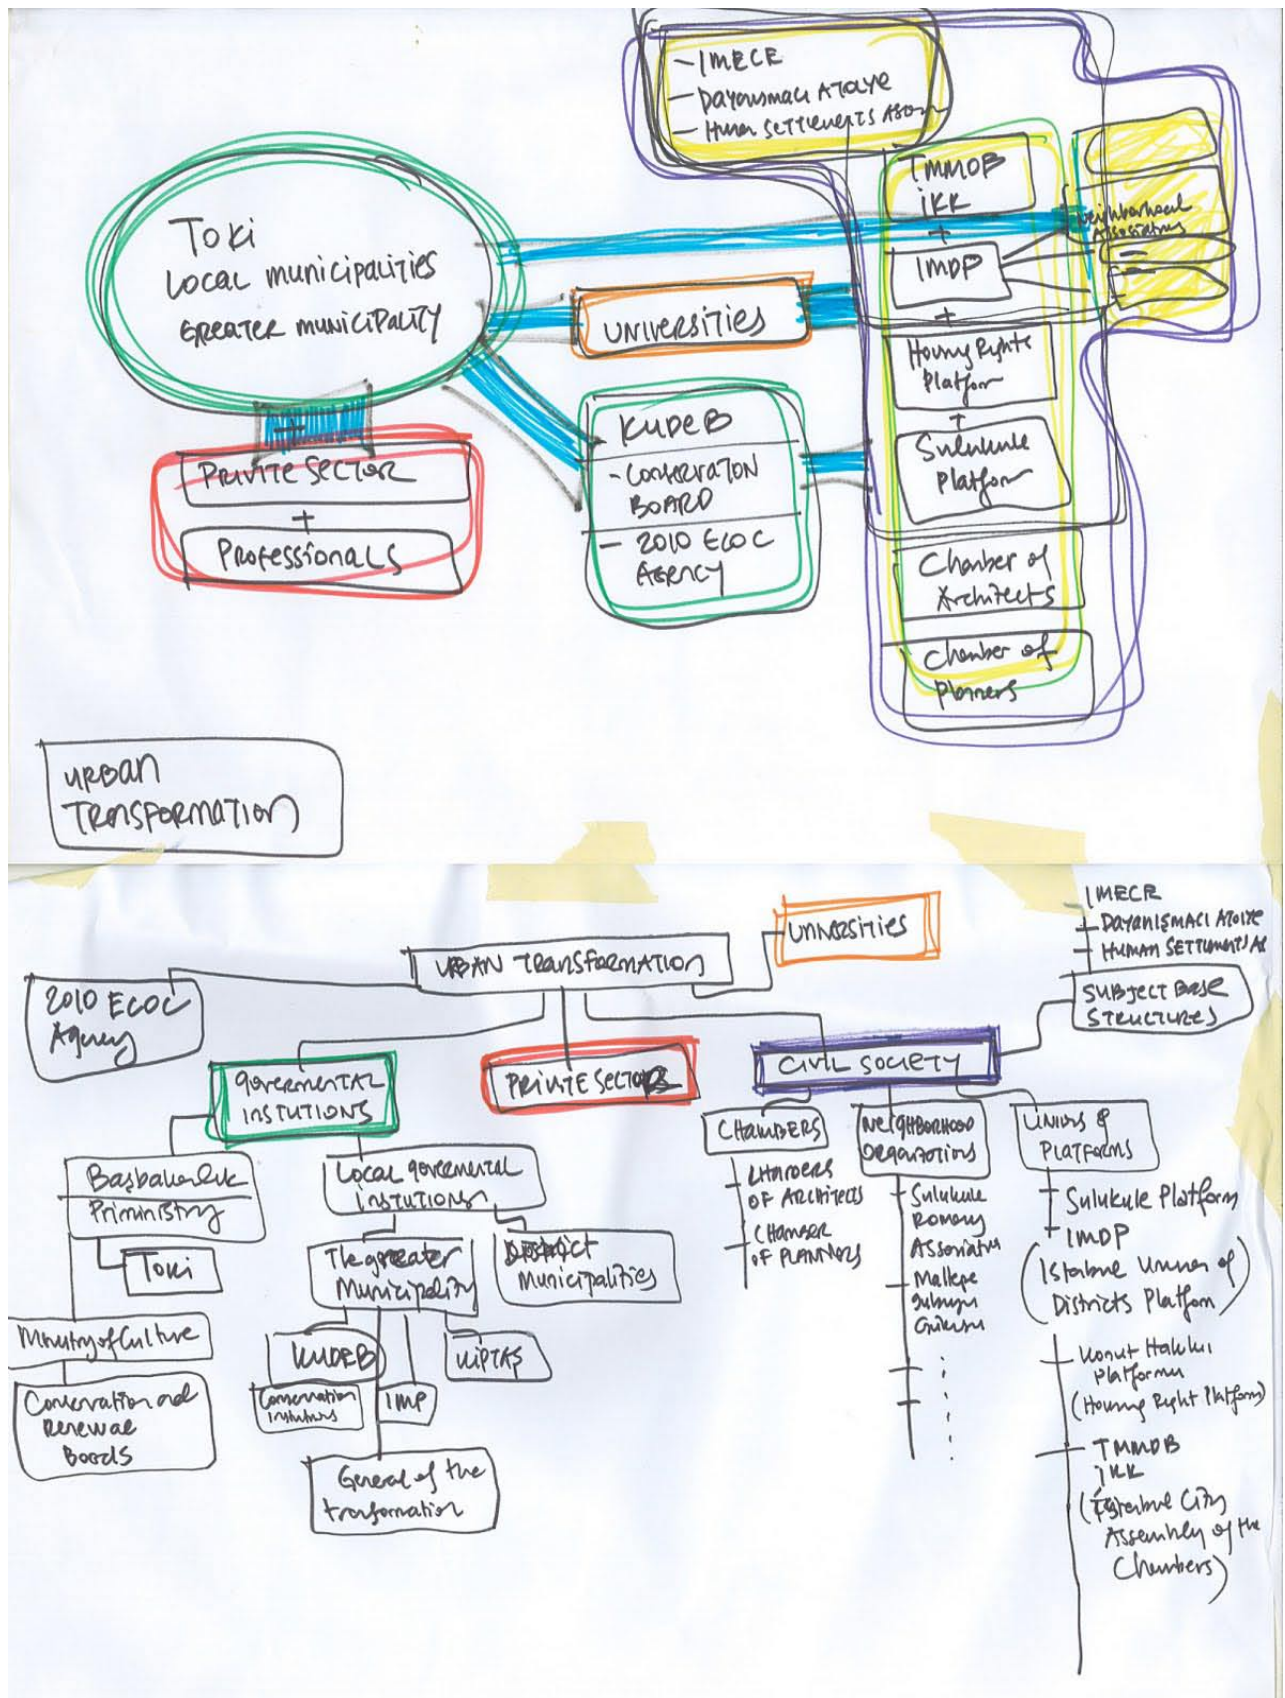 - IMECE
- DAYANISMACI ATOLYE
- Human SETTLEMENTS ASON
TMMOB
İKK
+
IMDP
+
Housing Rights
Platform
+
Sulukule
Platform
Chamber of
Architects
Chamber of
Planners
Neighborhood
Associations
TOKi
LOCAL municipalities
GREATER municipality
UNIVERSITIES
KUDEB
- CONSERVATION
BOARD
- 2010 ECOC
AGENCY
+
PRIVATE SECTOR
+
PROFESSIONALS
URBAN
TRANSFORMATION
URBAN TRANSFORMATION
UNIVERSITIES
- IMECE
- DAYANISMACI ATOLYE
- HUMAN SETTLEMENTS AS
SUBJECT BASE
STRUCTURES
2010 ECOC
Agency
governmental
INSTUTIONS
PRIVATE SECTORS
CIVIL SOCIETY
Basbakanlık
Priministry
TOKi
Ministry of Culture
Conservation and
Renewal
Boards
Local governmental
instutions
The greater
Municipality
District
Municipalities
KUDEB
Conservation
KİPTAS
IMP
General of the
transformation
CHAMBERS
- CHAMBERS
OF ARCHITECTS
- CHAMBER
OF PLANNERS
NEIGHBORHOOD
Organizations
- Sulukule
Romany
Association
- Maltepe
Gulsuyu
UNIONS &
PLATFORMS
- Sulukule Platform
- IMDP
(Istanbul Union of
Districts Platform)
- Konut Hakkı
Platformu
(Housing Right Platform)
- TMMOB
İKK
(İstanbul City
Assembly of the
Chambers)